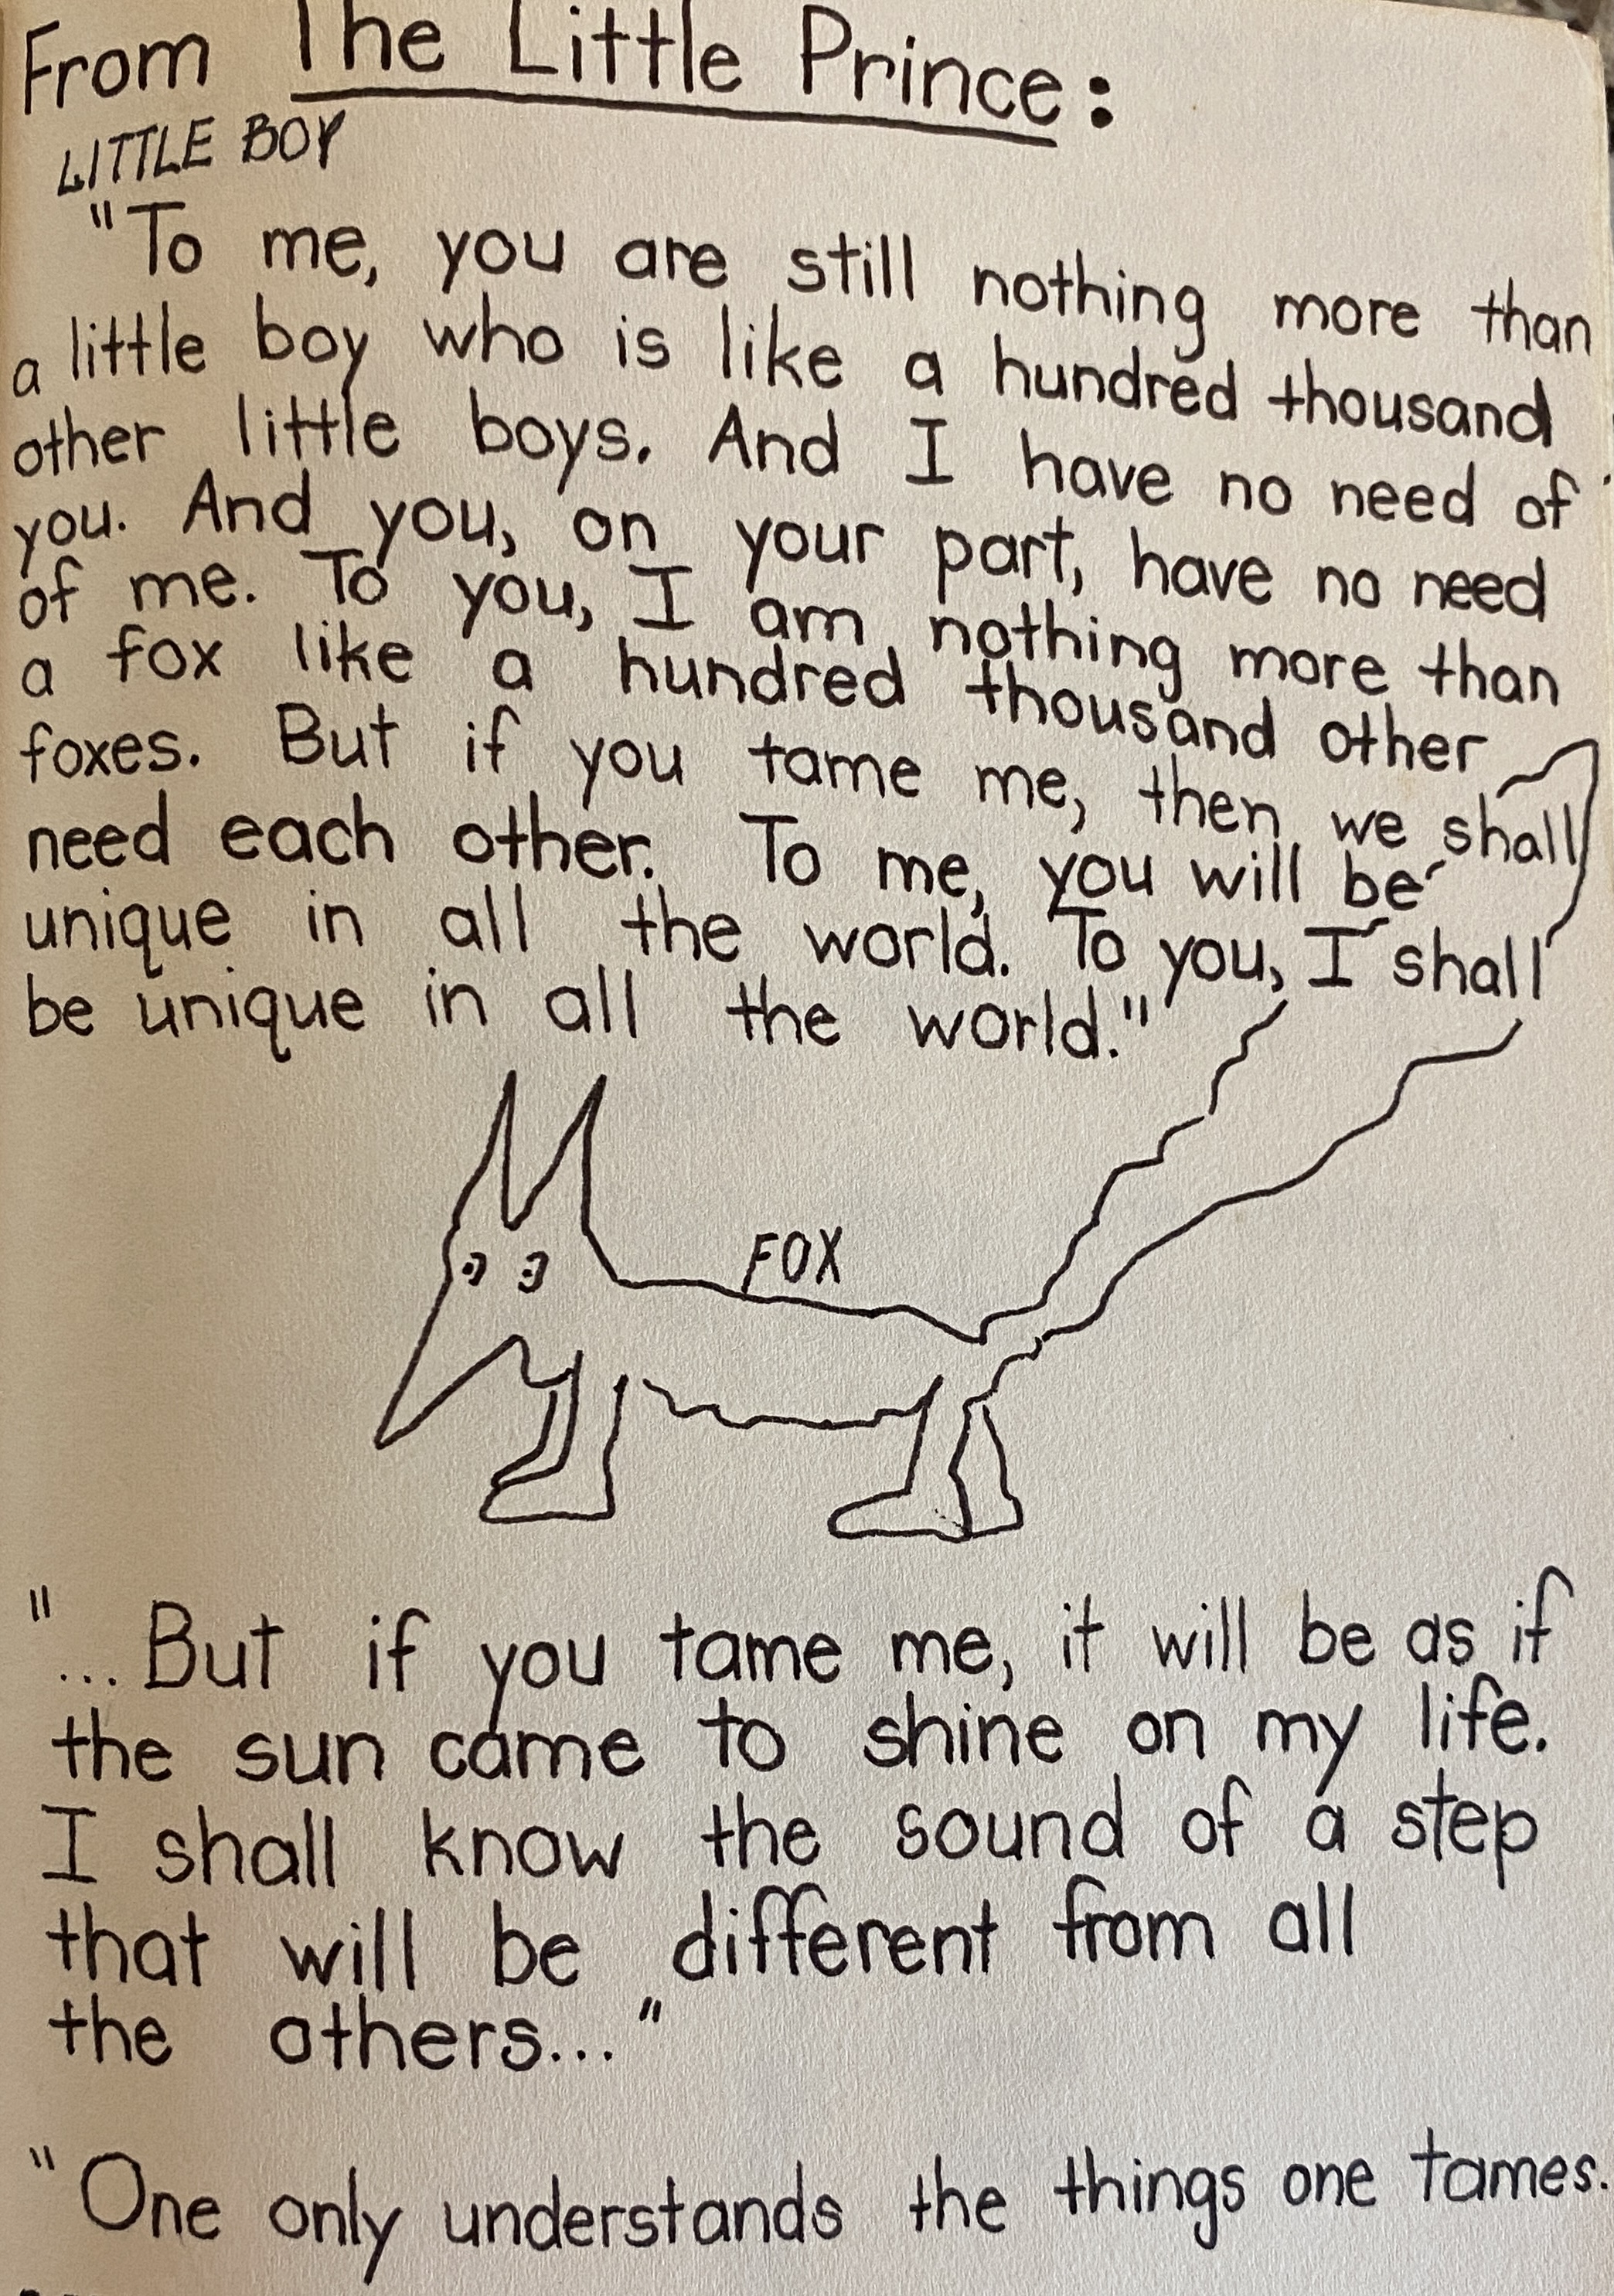 From The Little Prince:
LITTLE BOY
"To me, you are still nothing more than
a little boy who is like a hundred thousand
other little boys. And I have no need of
you. And you, on your part, have no need
of me. To you, I am nothing more than
a fox like a hundred thousand other
foxes. But if you tame me, then we shall
need each other. To me, you will be
unique in all the world. To you, I shall
be unique in all the world."
FOX
"...But if you tame me, it will be as if
the sun came to shine on my life.
I shall know the sound of a step
that will be different from all
the others..."
"One only understands the things one tames.